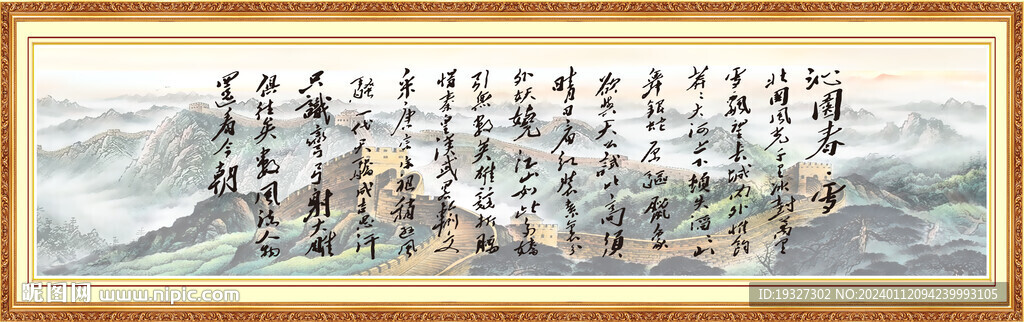 沁園春·雪
北國風光千里冰封萬里
雪飄望長城内外惟餘
莽〻大河上下頓失滔〻山
舞銀蛇原驅臘象
欲與天公試比高須
晴日看紅裝素裹分
外妖嬈江山如此多嬌
引無數英雄競折腰
惜秦皇漢武略輸文
采唐宗宋祖稍遜風
騷一代天驕成吉思汗
只識彎弓射大雕
俱往矣數風流人物
還看今朝
昵图网 www.nipic.com
ID:19327302 NO:20240112094239993105